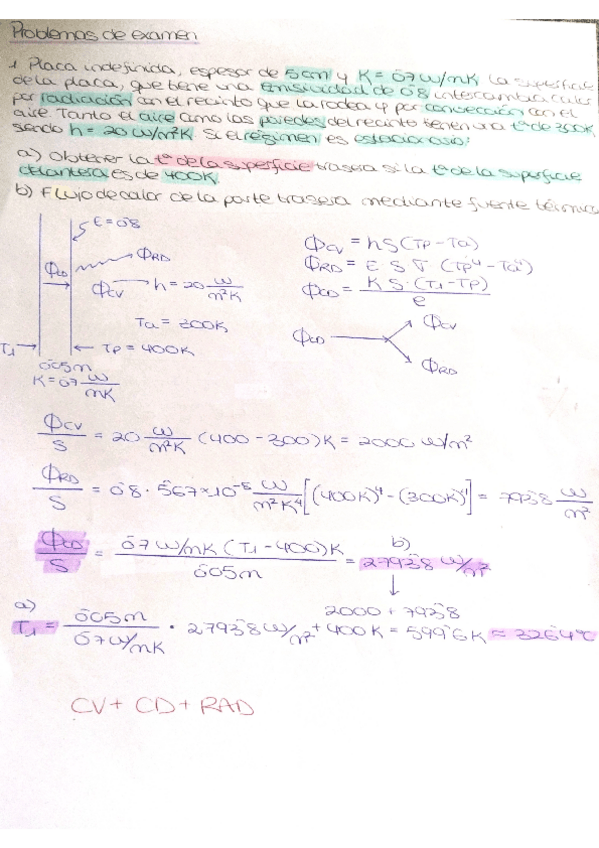 Problemas de examen
1. Placa indefinida, espesor de 5cm y K = 0'7 W/mK. La superficie
de la placa, que tiene una emisividad de 0'8 intercambia calor
por radiación con el recinto que la rodea y por convección con el
aire. Tanto el aire como las paredes del recinto tienen una tª de 300K,
siendo h = 20 W/m²K. Si el régimen es estacionario:
a) Obtener la tª de la superficie trasera si la tª de la superficie
delantera es de 400K.
b) Flujo de calor de la parte trasera mediante fuente térmica
ε = 0'8
ΦCD
ΦRD
ΦCV h = 20 W/m²K
Ta = 300K
T1 → ← Tp = 400K
0'05m
K = 0'7 W/mK
ΦCV = h S (Tp - Ta)
ΦRD = E S ∇ (Tp⁴ - Ta⁴)
ΦCD = K S · (T1 - Tp) / e
ΦCD
ΦCV
ΦRD
ΦCV / S = 20 W/m²K (400 - 300) K = 2000 W/m²
ΦRD / S = 0'8 · 5'67 × 10⁻⁸ W/m²K⁴ [(400K)⁴ - (300K)⁴] = 793'8 W/m²
ΦCD / S = 0'7 W/mK (T1 - 400) K / 0'05m = 2793'8 W/m²
b)
2000 + 793'8
a)
T1 = 0'05m / 0'7 W/mK · 2793'8 W/m² + 400K = 599'6K ≈ 326'4ºC
CV + CD + RAD